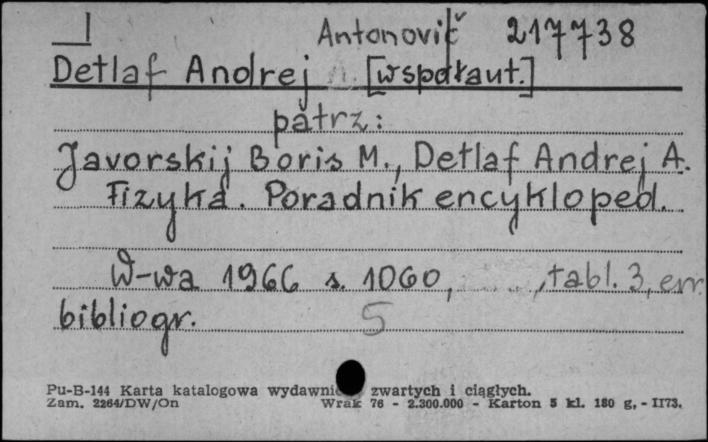 Antonovič 217738
Detlaf Andrej A. [współaut.]
patrz:
Javorskij Boris M., Detlaf Andrej A.
Fizyka. Poradnik encykloped.
W-wa 1966 s. 1060, , tabl. 3, err.
bibliogr. 5
Pu-B-144 Karta katalogowa wydawnic zwartych i ciągłych.
Zam. 2264/DW/On Wrak 76 - 2.300.000 - Karton 5 kl. 180 g. - II73.